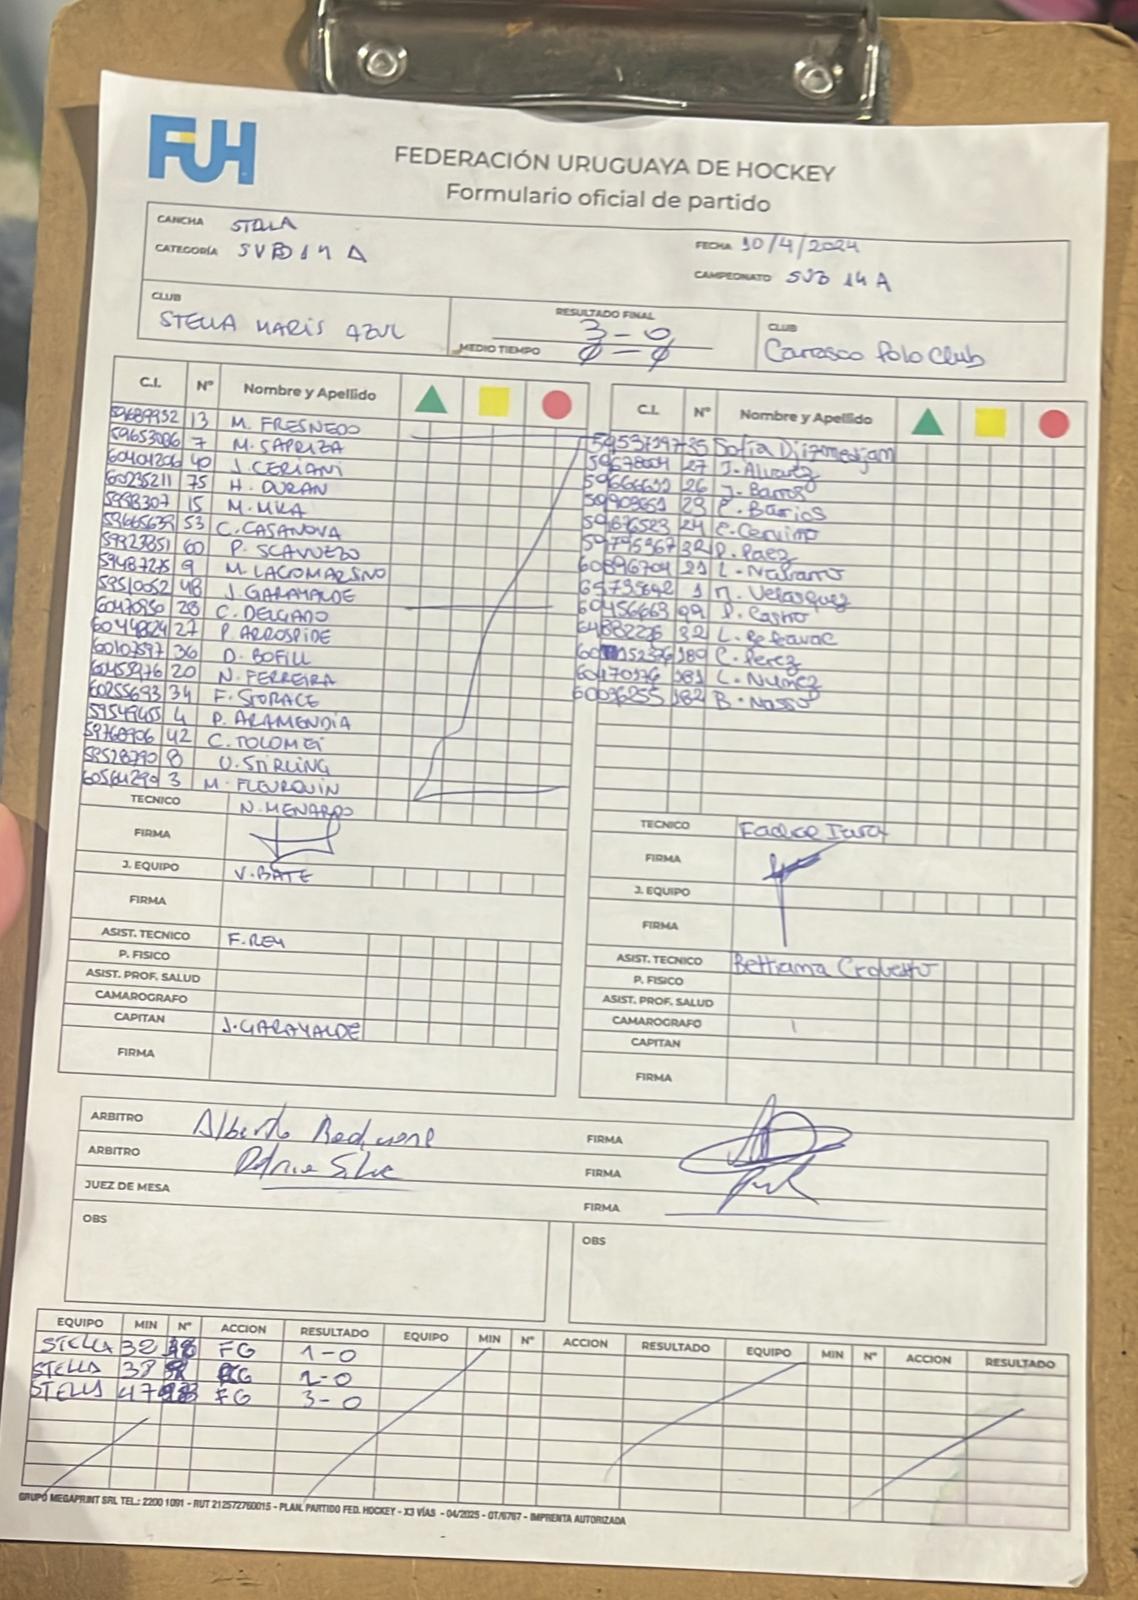 FUH
FEDERACIÓN URUGUAYA DE HOCKEY
Formulario oficial de partido
CANCHA STELLA
FECHA 10/4/2024
CATEGORÍA SVB 14 A
CAMPEONATO SUB 14 A
CLUB STELLA MARIS AZUL
RESULTADO FINAL 3-0
MEDIO TIEMPO 0-0
CLUB Carrasco Polo Club
C.I. Nº Nombre y Apellido
13 M. FRESNEDO
59653086 7 M. SAPRIZA
60401206 40 J. CERIANI
60235211 75 H. DURAN
15 M.
53665639 53 C. CASANOVA
59323851 60 P.
59487275 9 M. LAGOMARSINO
59510052 48 J. GARAYALDE
60470950 28 C. DELGADO
60444824 27 P. ARROSPIDE
60107597 36 D. BOFILL
20 N. FERREIRA
60255693 34 F. STORACE
59549455 4 P. ARAMENDIA
59768906 42 C. TOLOMEI
59528790 8 U. STIRLING
60564290 3 M. FLEURQUIN
TECNICO N. MENARDO
FIRMA
J. EQUIPO V. BATE
FIRMA
ASIST. TECNICO F. REY
P. FISICO
ASIST. PROF. SALUD
CAMAROGRAFO
CAPITAN J. GARAYALDE
FIRMA
C.I. Nº Nombre y Apellido
35 Sofia
27 J. Alvarez
26 J. Barros
23 Barios
24 C. Cervino
32 P. Paez
60896704 21 L. Navarro
1 M. Velasquez
60456663 99 P. Castro
64882226 32 L.
180 C. Perez
60470176 181 C. Nuñez
60096255 182 B. Nasso
TECNICO
FIRMA
J. EQUIPO
FIRMA
ASIST. TECNICO
P. FISICO
ASIST. PROF. SALUD
CAMAROGRAFO
CAPITAN
FIRMA
ARBITRO Alberto FIRMA
ARBITRO FIRMA
JUEZ DE MESA FIRMA
OBS OBS
EQUIPO MIN Nº ACCION RESULTADO EQUIPO MIN Nº ACCION RESULTADO EQUIPO MIN Nº ACCION RESULTADO
STELLA 32 FG 1-0
STELLA 38 2-0
STELLA 47 FG 3-0
GRUPO MEGAPRINT SRL TEL.: 2200 1091 - RUT 212572760015 - PLAN. PARTIDO FED. HOCKEY - X3 VÍAS - 04/2025 - OT/6767 - IMPRENTA AUTORIZADA